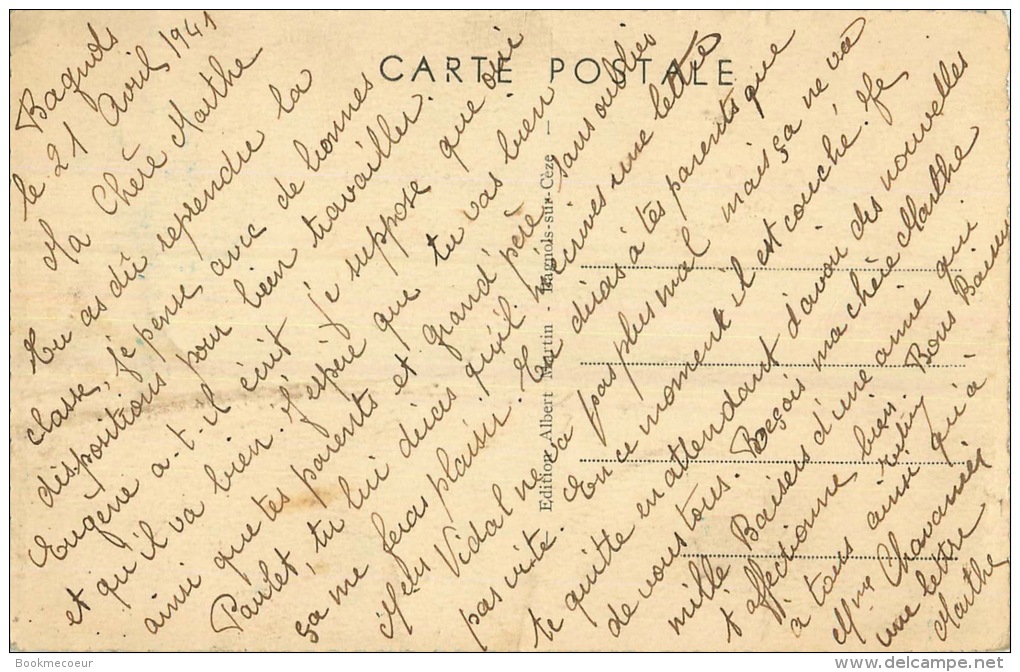 CARTE POSTALE
Edition Albert Martin - Bagnols-sur-Cèze -
Bagnols
le 21 Avril 1941
Ma Chère Marthe
Tu as dû reprendre la
classe, je pense avec de bonnes
dispositions pour bien travailler.
Eugène a-t-il écrit je suppose que oui
et qu'il va bien. j'espère que tu vas bien
ainsi que tes parents et grand père sans oublier
Paulet, tu lui diras qu'il m'écrives une lettre
ça me feras plaisir. Tu diras à tes parents que
Mr Vidal ne va pas plus mal mais ça ne va
pas vite. En ce moment il est couché. Je
te quitte en attendant d'avoir des nouvelles
de vous tous. Reçois ma chère Marthe
mille Baisers d'une amie qui
t'affectionne bien. Bons Baisers
à tous ainsi qu'à
Mme Chavanier
une lettre
Marthe
Bookmecoeur
www.delcampe.net